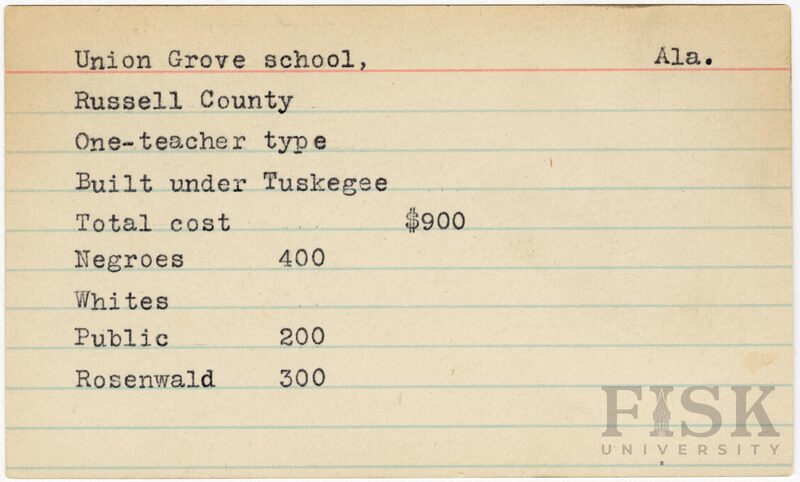 Union Grove school, Ala.
Russell County
One-teacher type
Built under Tuskegee
Total cost $900
Negroes 400
Whites
Public 200
Rosenwald 300
FISK
UNIVERSITY